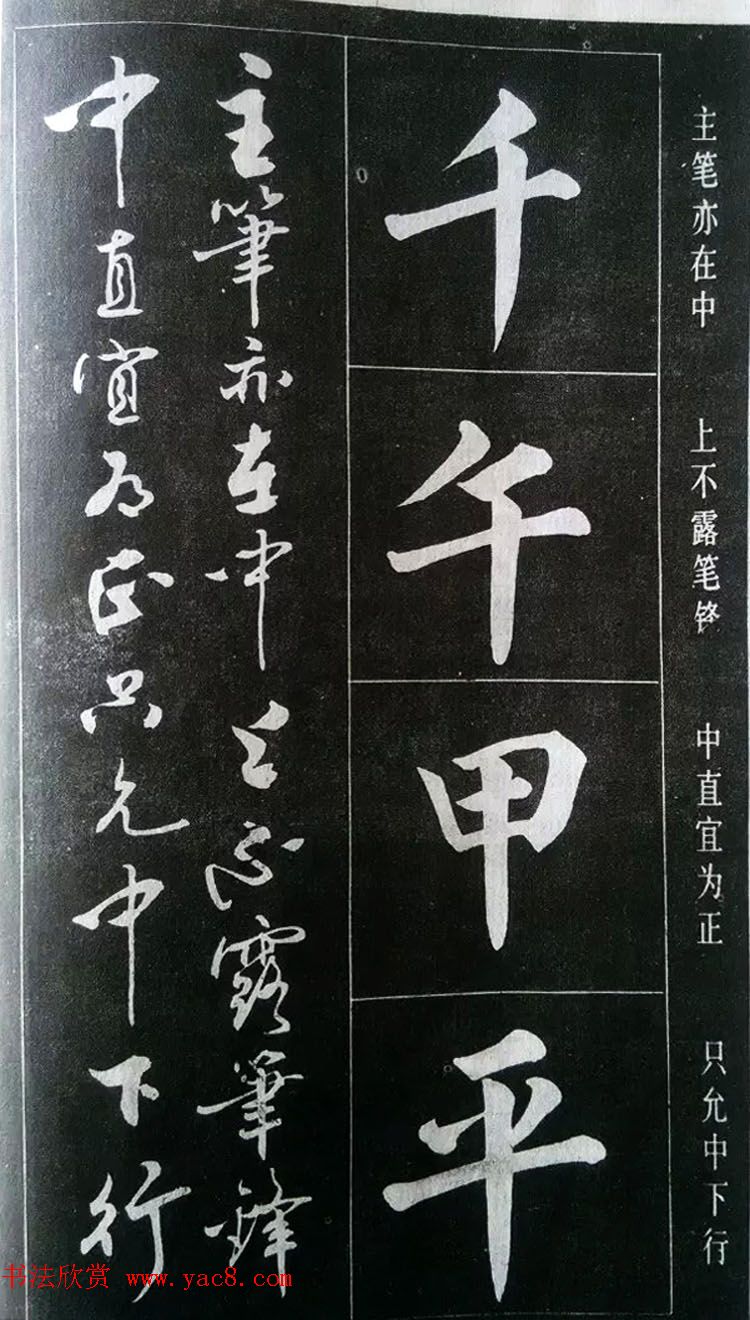 主笔亦在中 上不露笔锋 中直宜为正 只允中下行
千
午
甲
平
主筆亦在中上不露筆鋒
中直宜为正只允中下行
书法欣赏 www.yac8.com